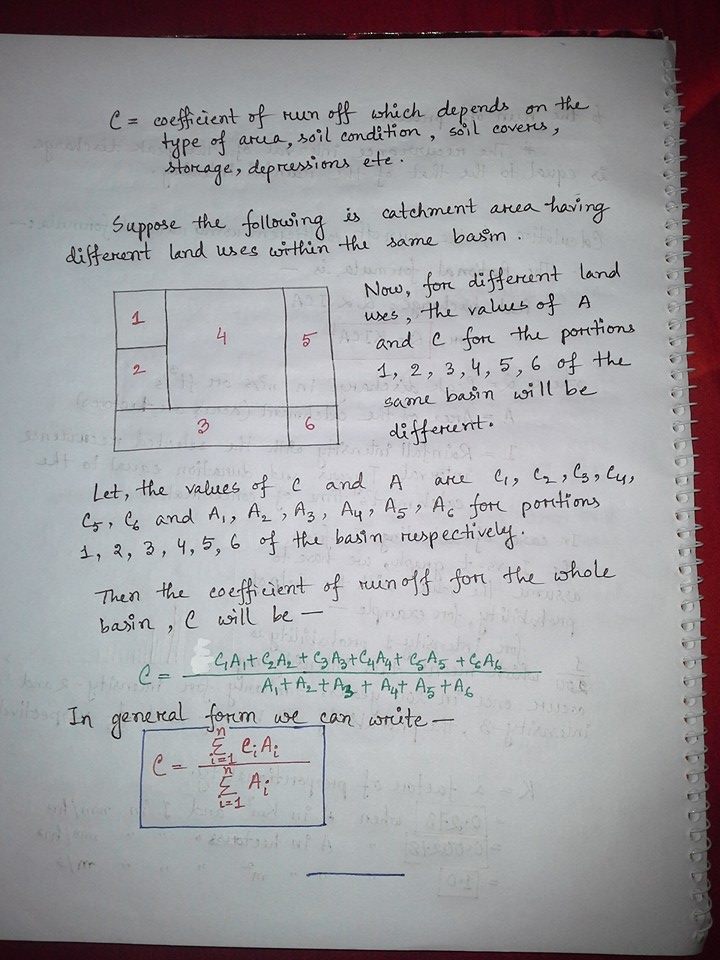 C = coefficient of run off which depends on the
type of area, soil condition, soil covers,
storage, depressions etc.
Suppose the following is catchment area having
different land uses within the same basin.
1
2
3
4
5
6
Now, for different land
uses, the values of A
and C for the portions
1, 2, 3, 4, 5, 6 of the
same basin will be
different.
Let, the values of C and A are C₁, C₂, C₃, C₄,
C₅, C₆ and A₁, A₂, A₃, A₄, A₅, A₆ for portions
1, 2, 3, 4, 5, 6 of the basin respectively.
Then the coefficient of runoff for the whole
basin, C will be —
C = (C₁A₁ + C₂A₂ + C₃A₃ + C₄A₄ + C₅A₅ + C₆A₆) / (A₁ + A₂ + A₃ + A₄ + A₅ + A₆)
In general form we can write —
C = (Σᵢ₌₁ⁿ CᵢAᵢ) / (Σᵢ₌₁ⁿ Aᵢ)